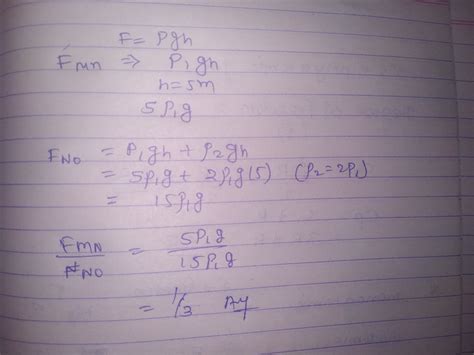 F = ρgh
F_MN ⇒ ρ₁gh
h = 5m
5ρ₁g
F_NO = ρ₁gh + ρ₂gh
= 5ρ₁g + 2ρ₁g(5) (ρ₂ = 2ρ₁)
= 15ρ₁g
F_MN / F_NO = 5ρ₁g / 15ρ₁g
= 1/3 Ay